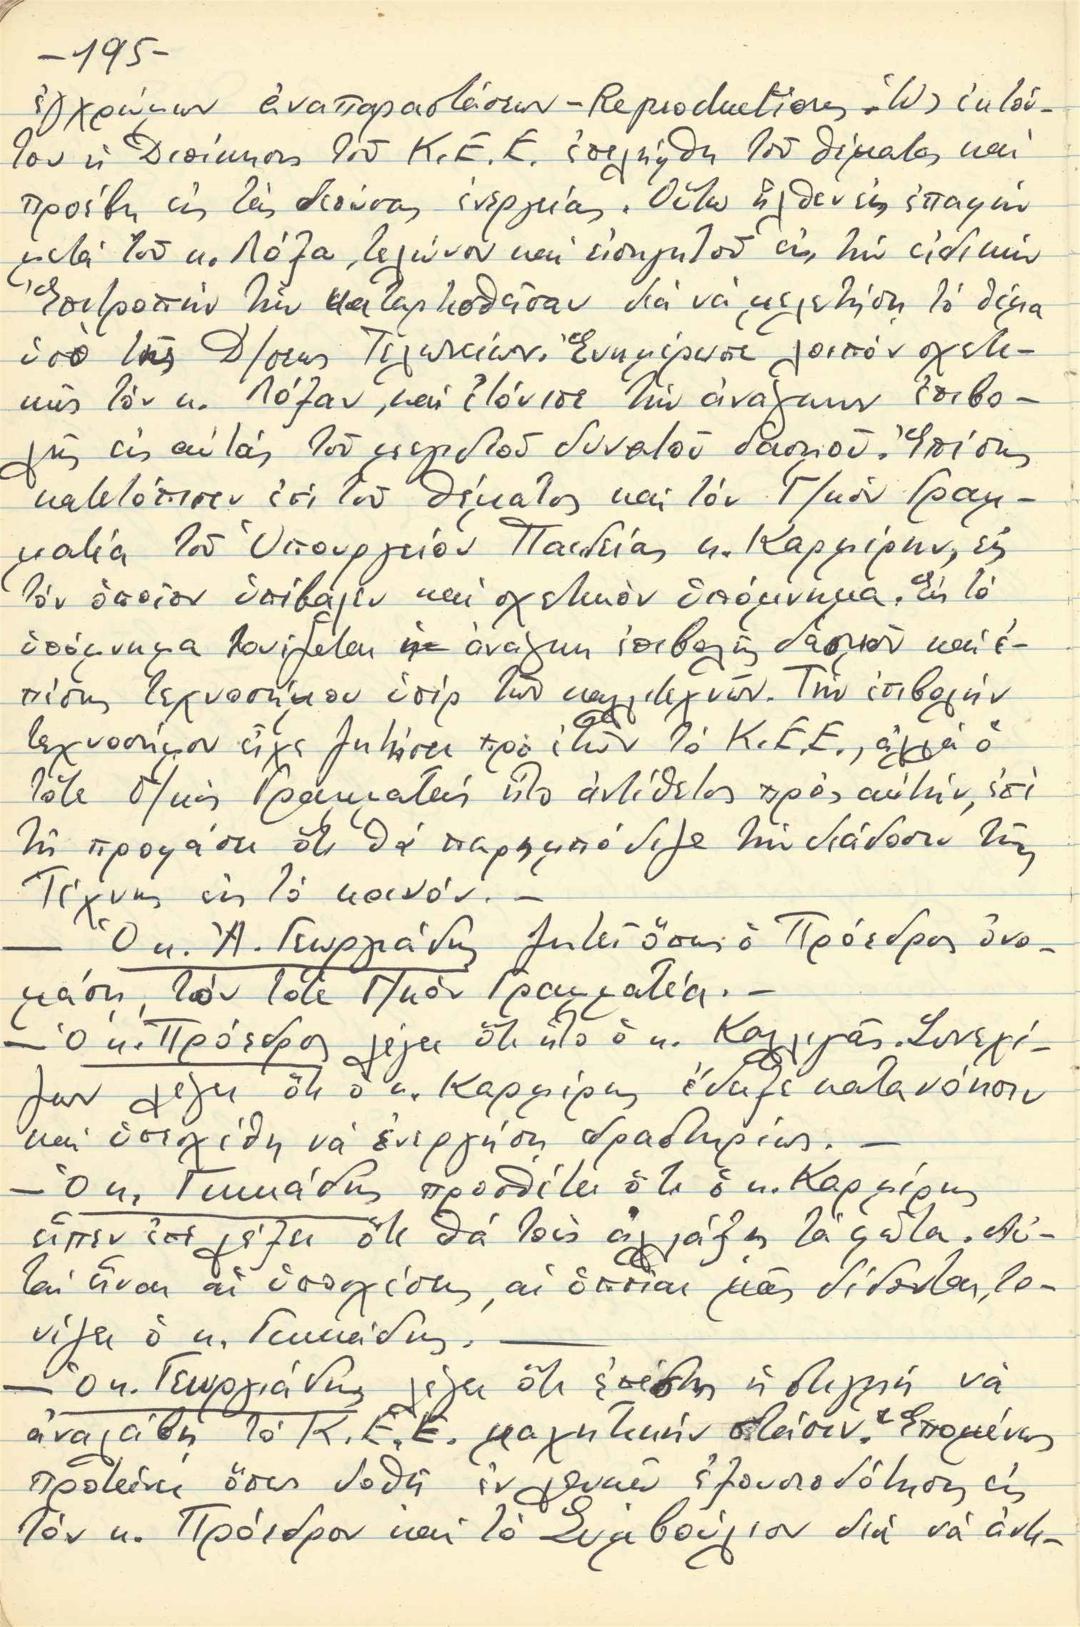 -195-
ἐγχρώμων ἀναπαραστάσεων - Reproductions. Ὡς ἐκ τού-
του ἡ Διοίκησις τοῦ Κ.Ε.Ε. ἐπελήφθη τοῦ θέματος καὶ
προέβη εἰς τὰς δεούσας ἐνεργείας. Οὕτω ἦλθεν εἰς ἐπαφὴν
μετὰ τοῦ κ. Λόζα, τελώνου καὶ εἰσηγητοῦ εἰς τὴν εἰδικὴν
Ἐπιτροπὴν τὴν καταρτισθεῖσαν διὰ νὰ μελετήσῃ τὸ θέμα
ὑπὸ τῆς Δ/σεως Τελωνείων. Ἐνημέρωσε λοιπὸν σχετι-
κῶς τὸν κ. Λόζαν, καὶ ἐτόνισε τὴν ἀνάγκην ἐπιβο-
λῆς εἰς αὐτὰς τοῦ μεγίστου δυνατοῦ δασμοῦ. Ἐπίσης
κατετόπισεν ἐπὶ τοῦ θέματος καὶ τὸν Γ/κὸν Γραμ-
ματέα τοῦ Ὑπουργείου Παιδείας κ. Καρμίρην, εἰς
τὸν ὁποῖον ὑπέβαλεν καὶ σχετικὸν ὑπόμνημα. Εἰς τὸ
ὑπόμνημα τονίζεται ἡ ἀνάγκη ἐπιβολῆς δασμοῦ καὶ ἐ-
πίσης τεχνοσήμου ὑπὲρ τῶν καλλιτεχνῶν. Τὴν ἐπιβολὴν
τεχνοσήμου εἶχε ζητήσει πρὸ ἐτῶν τὸ Κ.Ε.Ε., ἀλλὰ ὁ
τότε Γ/κὸς Γραμματεὺς ἦτο ἀντίθετος πρὸς αὐτήν, ἐπὶ
τῇ προφάσει ὅτι θὰ παρημπόδιζε τὴν διάδοσιν τῆς
Τέχνης εἰς τὸ κοινόν. -
- Ὁ κ. Ἀ. Γεωργιάδης ζητεῖ ὅπως ὁ Πρόεδρος ὀνο-
μάσῃ, τὸν τότε Γ/κὸν Γραμματέα. -
- Ὁ κ. Πρόεδρος λέγει ὅτι ἦτο ὁ κ. Καλλιγᾶς. Συνεχί-
ζων λέγει ὅτι ὁ κ. Καρμίρης ἔδειξε κατανόησιν
καὶ ὑπεσχέθη νὰ ἐνεργήσῃ δραστηρίως. -
- Ὁ κ. Γικκάδης προσθέτει ὅτι ὁ κ. Καρμίρης
εἶπεν ἐπὶ λέξει ὅτι θὰ τοὺς ἀλλάξῃ τὰ φῶτα. Αὐ-
ταὶ εἶναι αἱ ὑποσχέσεις, αἱ ὁποῖαι μᾶς δίδονται, το-
νίζει ὁ κ. Γικκάδης. -
- Ὁ κ. Γεωργιάδης λέγει ὅτι ἐπέστη ἡ στιγμὴ νὰ
ἀναλάβῃ τὸ Κ.Ε.Ε. μαχητικὴν στάσιν. Ἑπομένως
προτείνει ὅπως δοθῇ ἐν λευκῷ ἐξουσιοδότησις εἰς
τὸν κ. Πρόεδρον καὶ τὸ Συμβούλιον διὰ νὰ ἀντι-